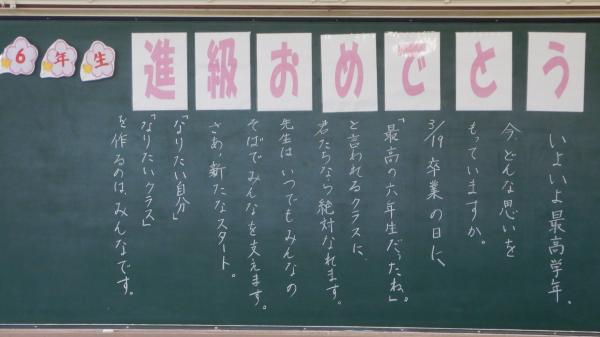 6年生
進級おめでとう
いよいよ最高学年。
今、どんな思いを
もっていますか。
3/19 卒業の日に、
「最高の六年生だったね。」
と言われるクラスに、
君たちなら絶対なれます。
先生は、いつでもみんなの
そばでみんなを支えます。
さあ、新たなスタート。
「なりたい自分」
「なりたいクラス」
を作るのは、みんなです。